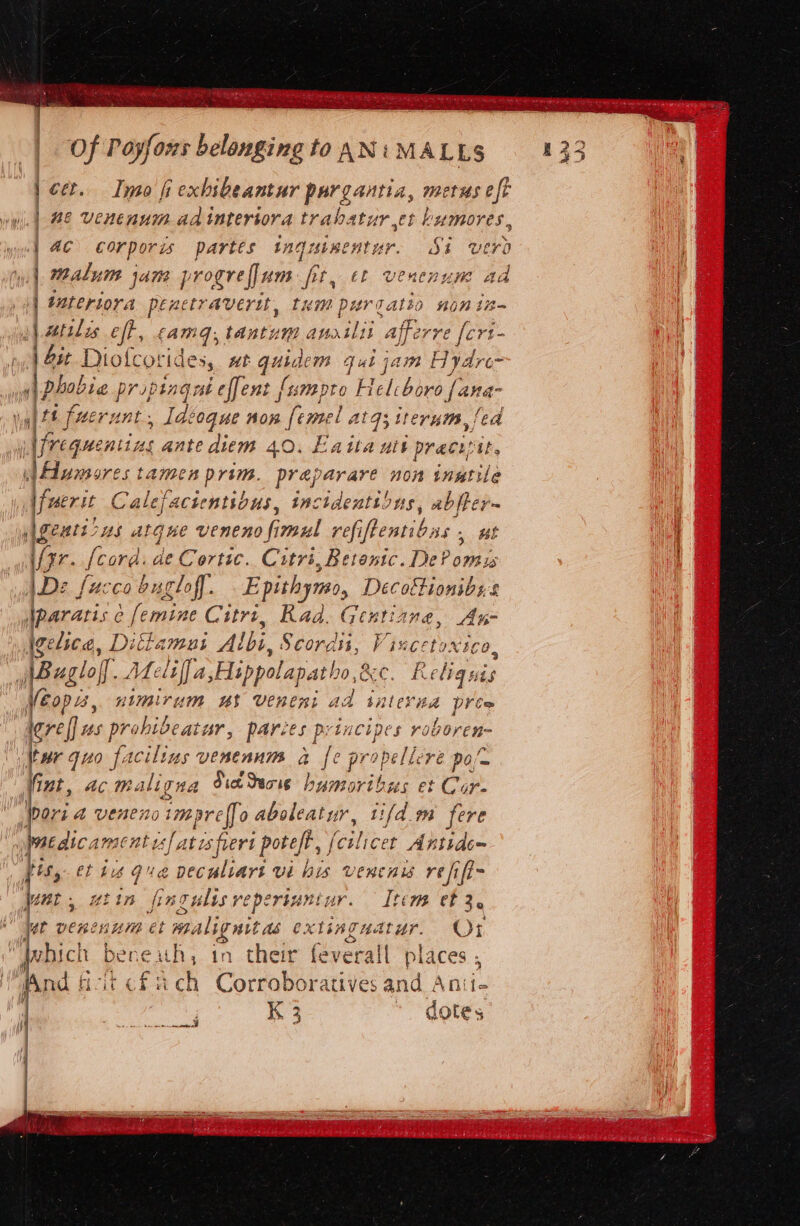 Of Poyſons belonging to ANIMALLS 133
cet. Imo ſi exhibeantur purgantia, metus eſt
ne venenum ad interiora trahatur, et humores,
ac corporis partes inquinentur. Si verò
malum jam progreſſum ſit, et venenum ad
interiora penetraverit, tum purgatio non in-
utilis eſt, eamq; tantum auxilii afferre ſcri-
bit Dioſcorides, ut quidem qui jam Hydro-
phobiæ propinqui eſſent ſumpto Helleboro ſana-
ti fuerunt, Idéoque non ſemel atq; iterum, ſed
frequentius ante diem 40.
Humores tamen prim. præparare non inutile
fuerit Calefacientibus, incidentibus, abſter-
gentibus atque veneno ſimul reſiſtentibus, ut
ſyr. ſcord. de Cortic. Citri, Betonic. De Pomis
De ſucco bugloſſ. Epithymo, Decoctionibus
paratis è ſemine Citri, Rad. Gentianæ, An-
gelica, Dictamni Albi, Scordii, Vincetoxico,
Bugloſſ. Meliſſa, Hippolapatho, &c. Reliquis
verò nimirum ut veneni ad interna pro-
greſſus prohibeatur, partes principes roboren-
tur quo facilius venenum à ſe propellere poſ-
ſint, ac maligna humoribus et Cor-
pori a veneno impreſſo aboleatur, iiſd.m fere
medicamentis ſatisfieri poteſt, ſcilicet Antido-
tis, et iis quæ peculiari vi his venenis reſiſt-
unt, uti in ſingulis reperiuntur. Item et 3.
ut venenum et malignitas extinguatur. Of
which beneath, in their ſeverall places,
And firſt of ſuch Corroboratives and Anti-
K 3 dotes